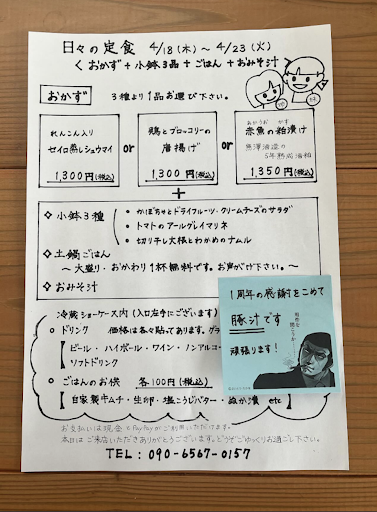 日々の定食 4/18(木)〜4/23(火)
くおかず+小鉢3品+ごはん+おみそ汁
おかず 3種より1品お選び下さい。
れんこん入り
セイロ蒸しシュウマイ
1,300円(税込)
or
鶏とブロッコリーの
唐揚げ
1,300円(税込)
or
あかうお かす
赤魚の粕漬け
1,350円(税込)
+
◇小鉢3種
・かぼちゃとドライフルーツ・クリームチーズのサラダ
・トマトのアールグレイマリネ
・切り干し大根とわかめのナムル
◇土鍋ごはん
〜大盛り・おかわり1杯無料です。お声がけ下さい。〜
◇おみそ汁
1周年の感謝をこめて
豚汁です
頑張ります!
冷蔵ショーケース内(入口左手にございます)
○ドリンク 価格は各々貼ってあります。グラ
【ビール・ハイボール・ワイン・ノンアルコ
ソフトドリンク
○ごはんのお供 各100円(税込)
【自家製キムチ・生卵・塩こうじバター・ぬか漬 etc
お支払いは現金とPayPayがご利用いただけます。
本日はご来店いただきありがとうございます。どうぞごゆっくりお過ごし下さい。
TEL:090-6567-0157